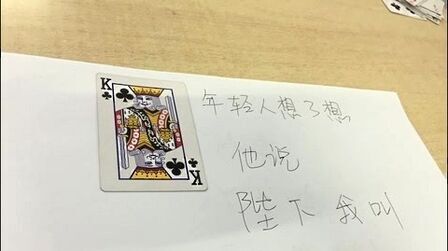 K
年轻人想了想
他说
陛下我叫
K